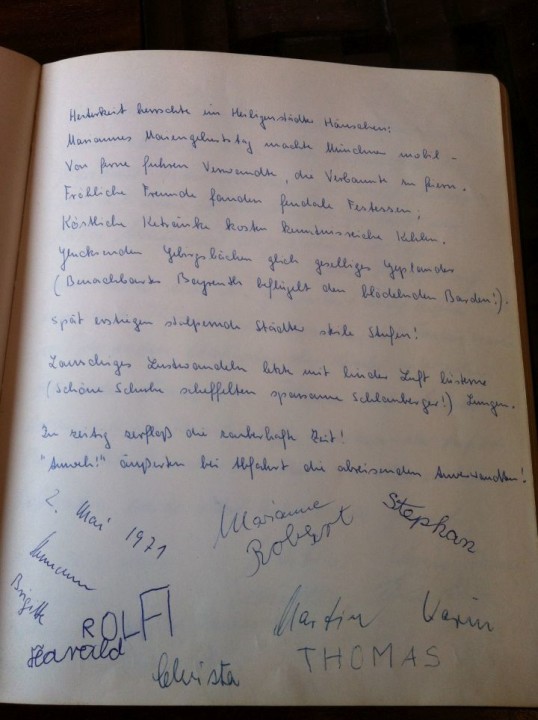 Heiterkeit herrschte im Heiligenstädter Häuschen:
Mariannes Maiengeburtstag machte München mobil -
Von ferne fuhren Verwandte, die Verbannte zu feiern.
Fröhliche Freunde fanden feudale Festessen,
Köstliche Getränke kosten kenntnisreiche Kehlen.
Glucksenden Gebirgsbächen glich geselliges Geplauder
(Benachbartes Bayreuth beflügelt den blödelnden Barden!).
Spät erstiegen stolpernde Städter steile Stufen!
Lauschiges Lustwandeln letzte mit linder Luft lüsterne
(Schöne Schuhe scheffelten sparsame Schlauberger!) Lungen.
Zu zeitig zerfloß die zauberhafte Zeit!
"Amoh!" äußerten bei Abfahrt die abreisenden Anverwandten!
2. Mai 1971
Marianne
Robert
Stephan
Brigitte
ROLFI
Harald
Christa
Martin
Karin
THOMAS